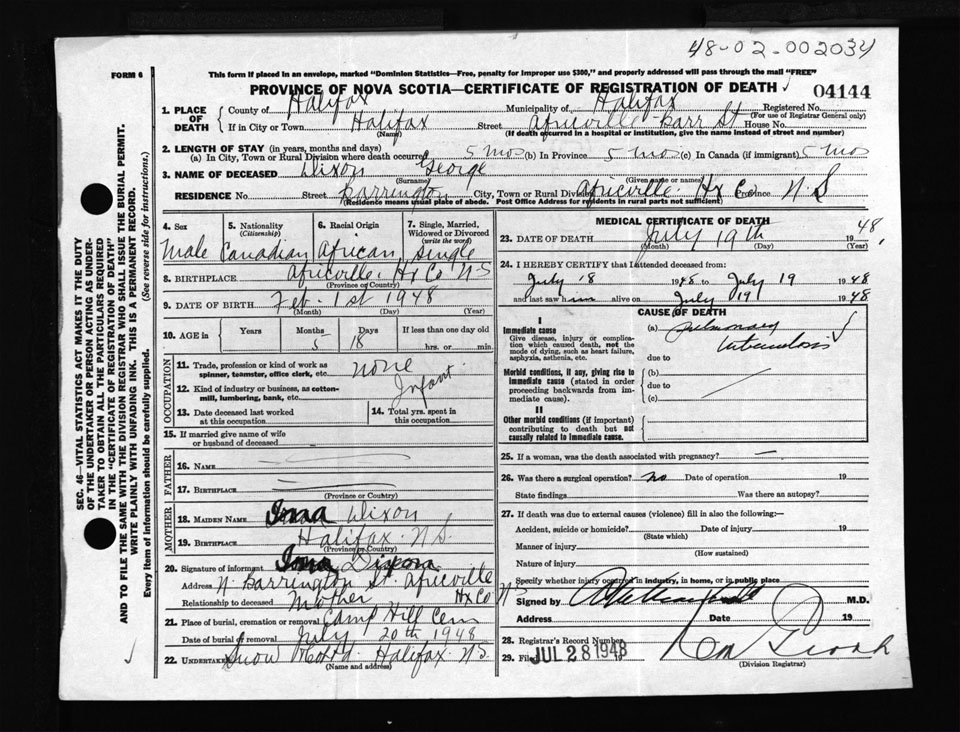 48-02-002034
FORM 6
This form if placed in an envelope, marked "Dominion Statistics—Free, penalty for improper use $300," and properly addressed will pass through the mail "FREE"
PROVINCE OF NOVA SCOTIA—CERTIFICATE OF REGISTRATION OF DEATH
04144
1. PLACE OF DEATH
County of Halifax Municipality of Halifax Registered No.
(For use of Registrar General only)
If in City or Town Halifax Street Africville Barr St House No.
(Name) (If death occurred in a hospital or institution, give the name instead of street and number)
2. LENGTH OF STAY (in years, months and days)
(a) In City, Town or Rural Division where death occurred 5 mos (b) In Province 5 mos (c) In Canada (if immigrant) 5 mos
3. NAME OF DECEASED Dixon George
(Surname) (Given name or names)
RESIDENCE No. Street Barrington City, Town or Rural Division Africville Hx Co Province N.S
(Residence means usual place of abode. Post Office Address for residents in rural parts not sufficient)
4. Sex 5. Nationality (Citizenship) 6. Racial Origin 7. Single, Married, Widowed or Divorced (write the word)
Male Canadian African Single
8. BIRTHPLACE Africville Hx Co N.S
(Province or Country)
9. DATE OF BIRTH Feb. 1st 1948
(Month) (Day) (Year)
10. AGE in Years Months Days If less than one day old
5 18 hrs. or min.
OCCUPATION
11. Trade, profession or kind of work as spinner, teamster, office clerk, etc. none
12. Kind of industry or business, as cotton-mill, lumbering, bank, etc. Infant
13. Date deceased last worked at this occupation
14. Total yrs. spent in this occupation
15. If married give name of wife or husband of deceased
FATHER
16. NAME
17. BIRTHPLACE
(Province or Country)
MOTHER
18. MAIDEN NAME Ima Dixon
19. BIRTHPLACE Halifax N.S.
(Province or Country)
20. Signature of informant Ima Dixon
Address N. Barrington St. Africville
Relationship to deceased Mother Hx Co N S
21. Place of burial, cremation or removal Camp Hill Cem
Date of burial or removal July 20th 1948
22. UNDERTAKER Snow Halifax N.S.
(Name and address)
MEDICAL CERTIFICATE OF DEATH
23. DATE OF DEATH July 19th 1948
(Month) (Day) (Year)
24. I HEREBY CERTIFY that I attended deceased from:
July 18 1948 to July 19 1948
and last saw him alive on July 19 1948
CAUSE OF DEATH
I
Immediate cause
Give disease, injury or complication which caused death, not the mode of dying, such as heart failure, asphyxia, asthenia, etc.
(a) Pulmonary
tuberculosis
due to
Morbid conditions, if any, giving rise to immediate cause (stated in order proceeding backwards from immediate cause).
(b)
due to
(c)
II
Other morbid conditions (if important) contributing to death but not causally related to immediate cause.
25. If a woman, was the death associated with pregnancy?
26. Was there a surgical operation? no Date of operation 19
State findings Was there an autopsy?
27. If death was due to external causes (violence) fill in also the following:—
Accident, suicide or homicide? Date of injury 19
(State which)
Manner of injury
(How sustained)
Nature of injury
Specify whether injury occurred in industry, in home, or in public place
Signed by M.D.
Address Date 19
28. Registrar's Record Number
29. Filed JUL 28 1948
(Division Registrar)
SEC. 46—VITAL STATISTICS ACT MAKES IT THE DUTY
OF THE UNDERTAKER OR PERSON ACTING AS UNDER-
TAKER TO OBTAIN ALL THE PARTICULARS REQUIRED
IN THE "CERTIFICATE OF REGISTRATION OF DEATH"
AND TO FILE THE SAME WITH THE DIVISION REGISTRAR WHO SHALL ISSUE THE BURIAL PERMIT.
WRITE PLAINLY WITH UNFADING INK. THIS IS A PERMANENT RECORD.
Every item of information should be carefully supplied. (See reverse side for instructions.)